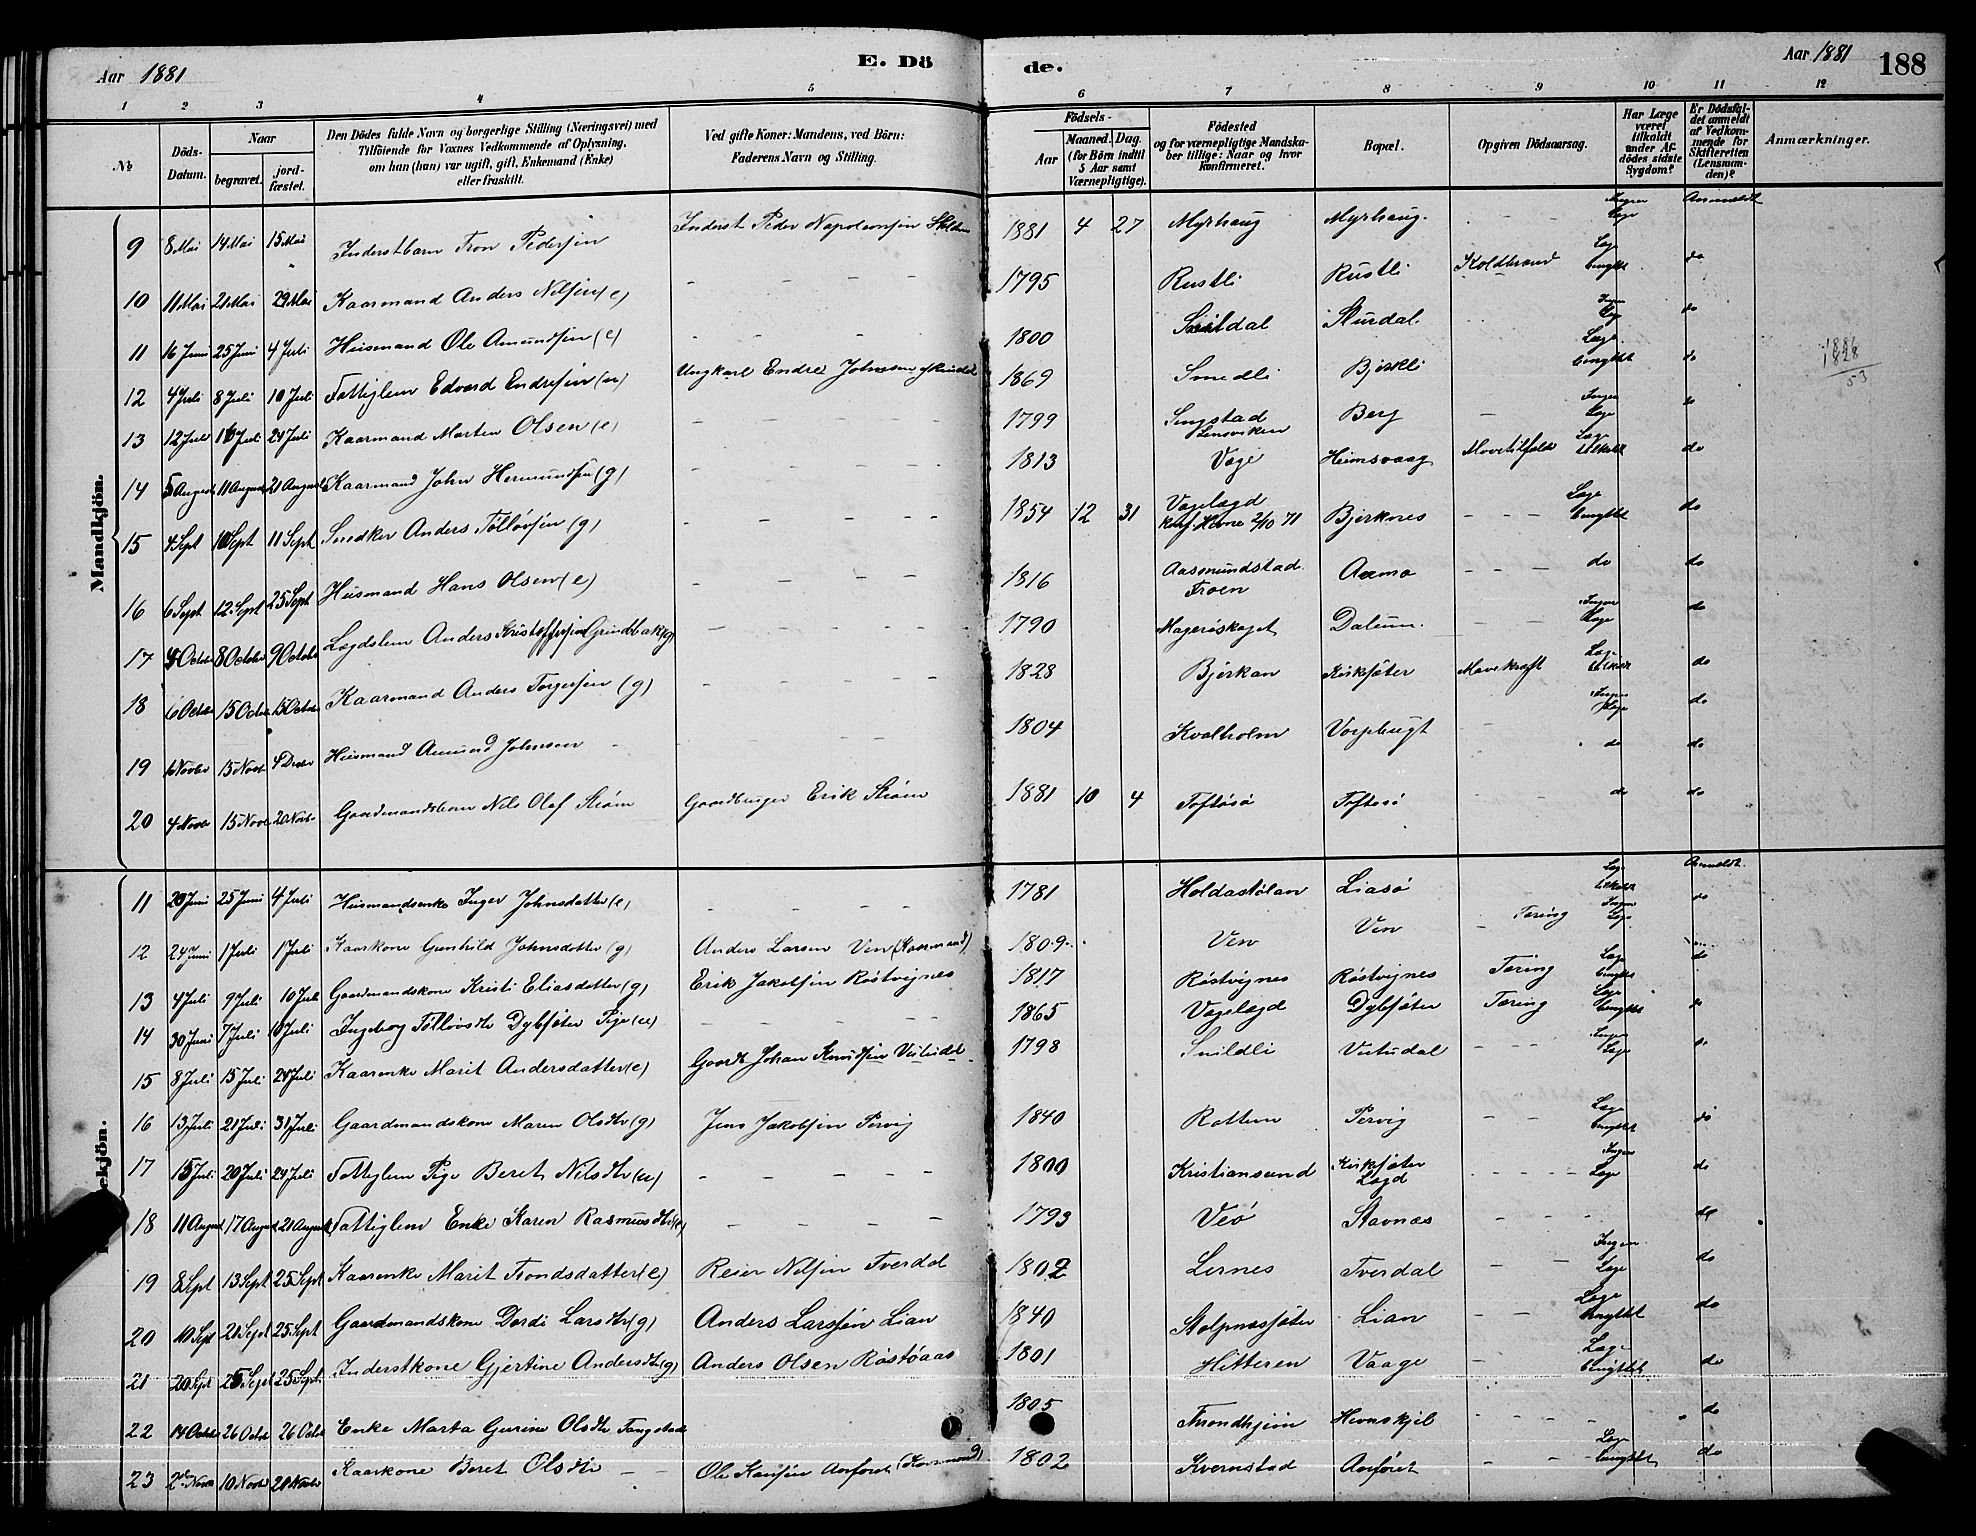 Aar 1881
E. Dö
de.
Aar 1881
188
1 2 3 4 5 6 7 8 9 10 11 12
No
Döds-Datum.
Naar
begravet.
jordfæstet.
Den Dödes fulde Navn og borgerlige Stilling (Næringsvei) med
Tilföiende for Voxnes Vedkommende af Oplysning,
om hun (han) var ugift, gift, Enkemand (Enke)
eller fraskilt.
Ved gifte Koner: Mandens, ved Börn:
Faderens Navn og Stilling.
Födsels-
Aar
Maaned. Dag.
(for Börn indtil
5 Aar samt
Værnepligtige).
Födested
og for værnepligtige Mandska-
ber tillige: Naar og hvor
konfirmeret.
Bopæl.
Opgiven Dödsaarsag.
Har Læge
været
tilkaldt
under Af-
dödes sidste
Sygdom?
Er Dödsfal-
det anmeldt
af Vedkom-
mende for
Skifteretten
(Lensman-
den)?
Anmærkninger.
Mandkjön.
9 8 Mai 14 Mai 15 Mai Inderstbarn Tron Pedersen Inderst Peder Napoleonsen 1881 4 27 Myrhaug Myrhaug. Ingen Læge Anmeldt
10 11 Mai 21 Mai 29 Mai Kaarmand Anders Nilsen (e) 1795 Rustli Rustli Koldbrand Læge benyttet do
11 16 Juni 25 Juni 4 Juli Husmand Ole Amundsen (e) 1800 Snildal Sturdal Ingen Læge do
12 4 Juli 8 Juli 10 Juli Fattiglem Edvard Endresen (u) Ungkarl Endre Johnsen 1869 Smedli Bjørkli Læge benyttet do
1881
1828
53
13 12 Juli 16 Juli 24 Juli Kaarmand Morten Olsen (e) 1799 Singstad Lensviken Berg Ingen Læge do
14 5 August 11 August 21 August Kaarmand John Hermundsen (g) 1813 Vage Heimsvaag Mavetilfælde Læge tilkaldt do
15 4 Sept 10 Sept 11 Sept Snedker Anders Tølløvsen (g) 1854 12 31 Vagelægd Konf. Hevne 2/10 71 Bjerknes Læge benyttet do
16 6 Sept 12 Sept 25 Sept Husmand Hans Olsen (e) 1816 Aasmundstad Troen Aamo do do
17 4 Octbr 8 October 9 October Lægdslem Anders Kristoffersen Grindbak (g) 1790 Magerøskaget Dalum. Ingen Læge do
18 6 Octbr 15 Octbr 15 Octbr Kaarmand Anders Torgersen (g) 1828 Bjørkan Kirksæter Mavekræft Læge tilkaldt do
19 6 Novbr 13 Novbr 4 Decbr Husmand Amund Johnsen 1804 Kvalholm Vorpbugt Ingen Læge do
20 4 Novbr 15 Novbr 20 Novbr Gaardmandsbarn Nils Olaf Strøm Gaardbruger Erik Strøm 1881 10 4 Toftøsø Toftøsø do do
11 20 Juni 25 Juni 4 Juli Husmandsenke Inger Johnsdatter (e) 1781 Holdastølan Liasø Læge tilkaldt Anmeldt
12 24 Juni 1 Juli 1 Juli Kaarkone Gunhild Johnsdatter (g) Anders Larsen Ven (Kaarmand) 1809 Ven Ven Tæring Ingen Læge do
13 4 Juli 9 Juli 10 Juli Gaardmandskone Kristi Eliasdatter (g) Erik Jakobsen Røstvignes 1817 Røstvignes Røstvignes Tæring Læge benyttet do
14 30 Juni 7 Juli 10 Juli Ingeborg Tølløvsdtr Dybsæter Pige (u) 1865 Vagelægd Dybsæter Tæring Læge benyttet do
15 8 Juli 15 Juli 24 Juli Kaarenke Marit Andersdatter (e) Gaardb. Johan Knudsen 1798 Snildli Vutudal Ingen Læge do
16 13 Juli 21 Juli 31 Juli Gaardmandskone Maren Olsdtr (g) Jens Jakobsen Pervig 1840 Rottem Pervig Læge benyttet do
17 15 Juli 20 Juli 24 Juli Fattiglem Pige Beret Nilsdtr (u) 1800 Kristiansund Kirksæter Lægd Ingen Læge do
18 11 August 17 August 21 August Fattiglem Enke Karen Rasmusdtr (e) 1793 Veø Stavnæs do
19 8 Sept 13 Sept 25 Sept Kaarenke Marit Trondsdatter (e) Reier Nilsen Tverdal 1802 Lernes Tverdal Ingen Læge do
20 10 Sept 21 Sept 25 Sept Gaardmandskone Dordi Larsdtr (g) Anders Larssen Lian 1840 Stolpnessæter Lian Læge benyttet do
21 20 Sept 25 Sept 25 Sept. Inderstkone Gjertine Andersdtr (g) Anders Olsen Røstøaas 1801 Hitteren Vaage Læge benyttet do
22 14 Octbr 26 Octbr 26 Octbr Enke Marta Gurine Olsdtr Tangstad 1805 Trondhjem Hevnskjel do
23 2den Novbr 10 Novbr 20 Novbr Kaarkone Beret Olsdtr Ole Hansen Aarføret (Kaarmand) 1802 Kvernstad Aarføret Læge benyttet do